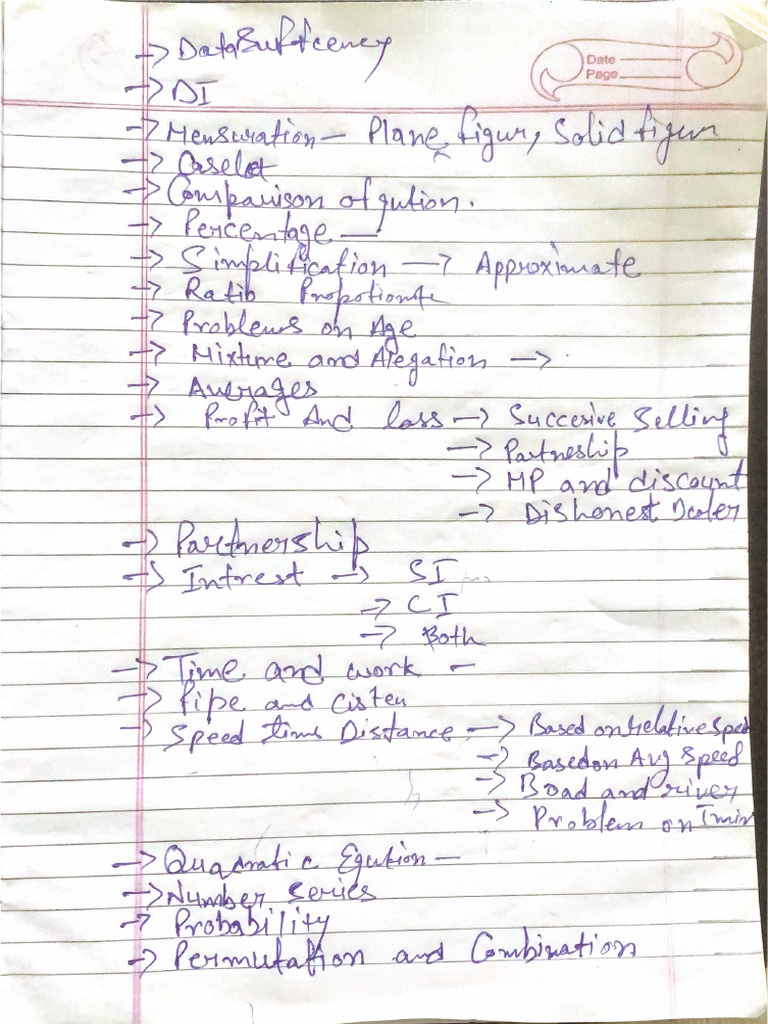 → Data Sufficency
Date
Page
→ DI
→ Mensuration – Plane figur, Solid figur
→ Caselet
→ Comparison of qution.
→ Percentage —
→ Simplification → Approximate
→ Ratio Propotionate
→ Problems on Age
→ Mixture and Alegation →
→ Averages
→ Profit And loss → Succesive Selling
→ Partneship
→ MP and discount
→ Dishonest Dealer
→ Partnership
→ Intrest → SI
→ CI
→ Both
→ Time and work –
→ Pipe and Cisten
→ Speed time Distance → Based on relative Speed
→ Based on Avg Speed
→ Boad and river
→ Problem on Train
→ Quadratic Eqution –
→ Number Series
→ Probability
→ Permutation and Combination